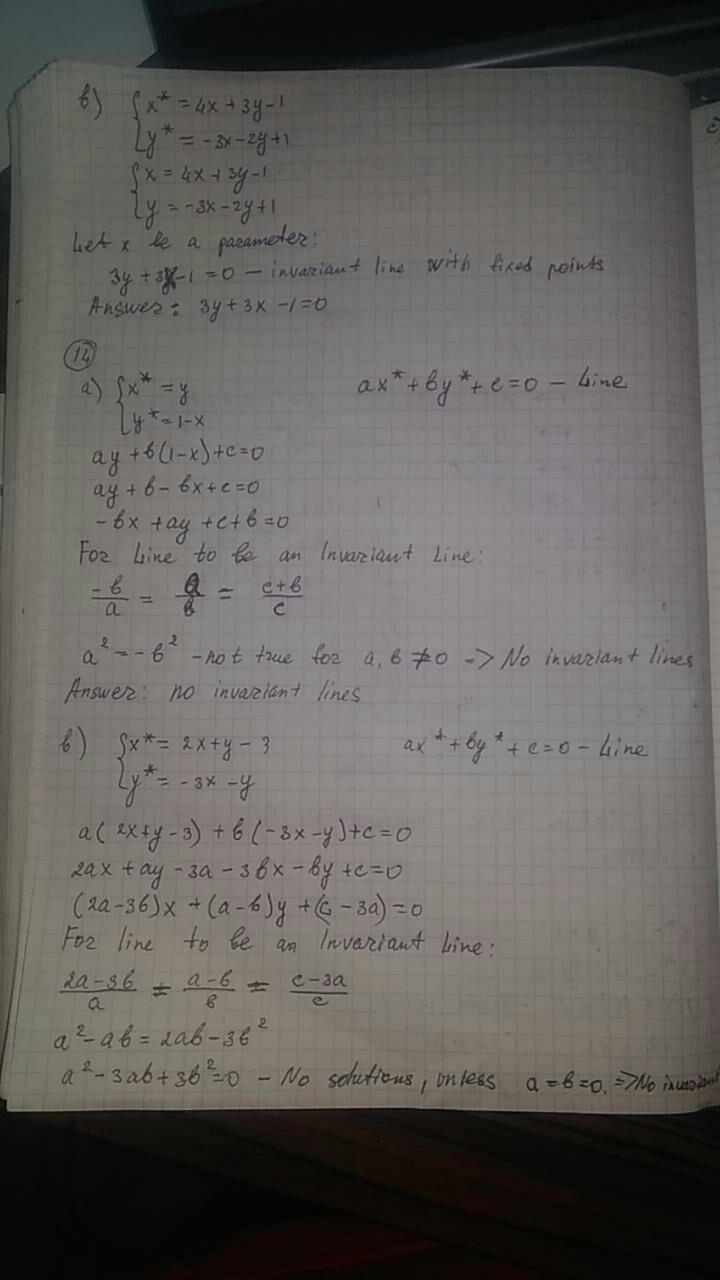 b) { x* = 4x + 3y - 1
y* = -3x - 2y + 1
{ x = 4x + 3y - 1
y = -3x - 2y + 1
Let x be a parameter:
3y + 3x - 1 = 0 – invariant line with fixed points
Answer: 3y + 3x - 1 = 0
14
a) { x* = y ax* + by* + c = 0 – Line
y* = 1 - x
ay + b(1-x) + c = 0
ay + b - bx + c = 0
-bx + ay + c + b = 0
For Line to be an Invariant Line:
-b/a = a/b = c+b/c
a² = -b² - not true for a, b ≠ 0 => No invariant lines
Answer: no invariant lines
b) { x* = 2x + y - 3 ax* + by* + c = 0 – Line
y* = -3x - y
a(2x+y-3) + b(-3x-y) + c = 0
2ax + ay - 3a - 3bx - by + c = 0
(2a-3b)x + (a-b)y + (c-3a) = 0
For line to be an Invariant Line:
2a-3b/a = a-b/b = c-3a/c
a² - ab = 2ab - 3b²
a² - 3ab + 3b² = 0 – No solutions, unless a = b = 0. => No invariant